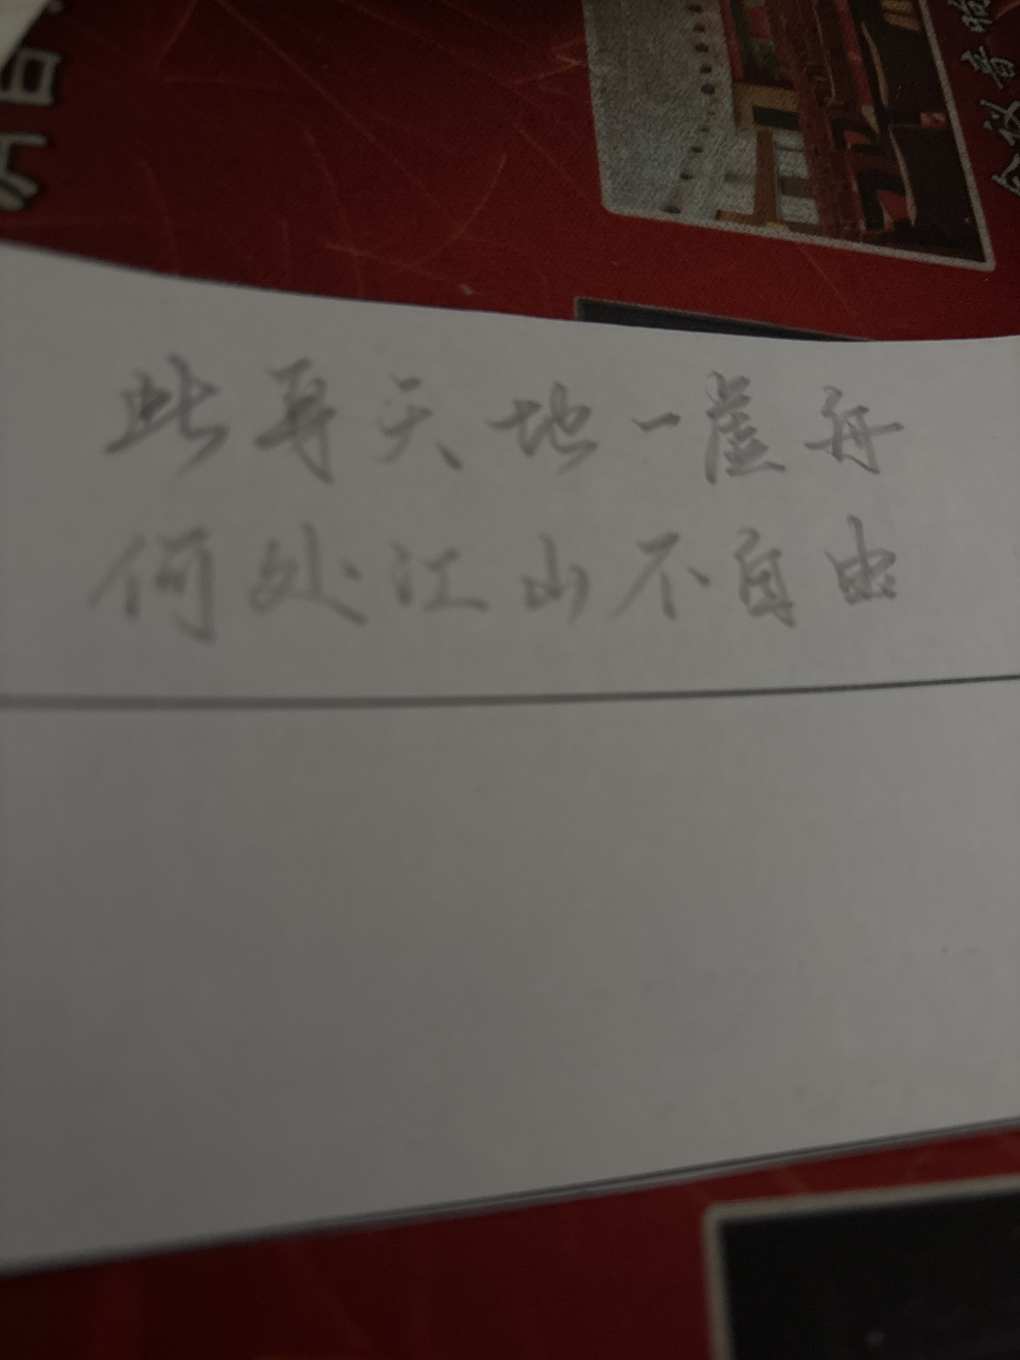 此身天地一虚舟
何处江山不自由